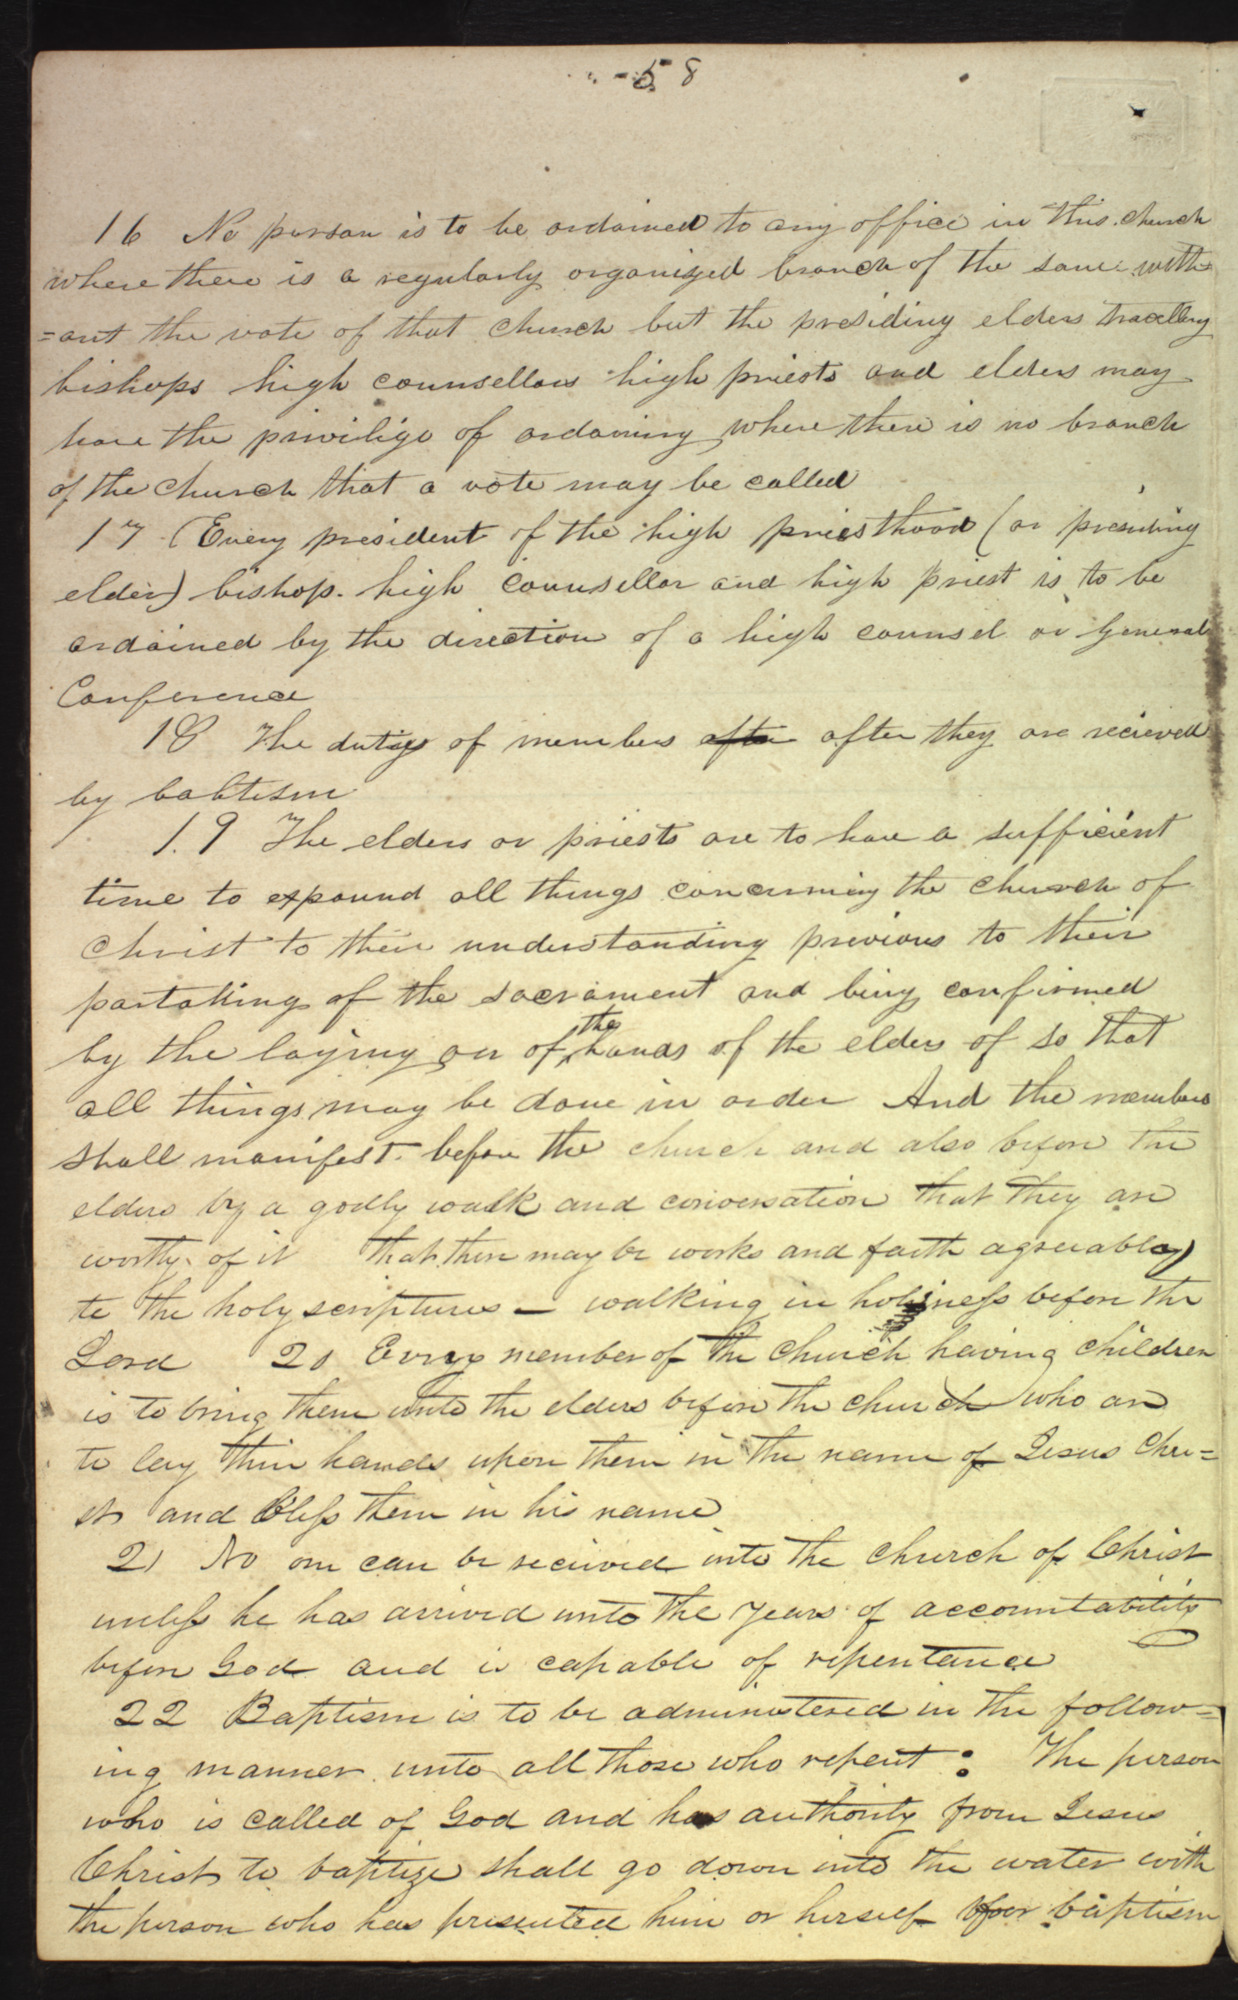 58
16 No person is to be ordained to any office in this church
where there is a regularly organized branch of the same with
=out the vote of that church but the presiding elders travelling
bishops high counsellors high priests and elders may
have the privilige of ordaining where there is no branch
of the church that a vote may be called
17 Every president of the high priesthood (or presiding
elder) bishop. high counsellor and high priest is to be
ordained by the direction of a high counsel or General
Conference
18 The duties of members after after they are recieved
by babtism
19 The elders or priests are to have a sufficient
time to expound all things concerning the church of
Christ to their understanding previous to their
partaking of the sacrament and being confirmed
by the laying on of the hands of the elders of so that
all things may be done in order And the members
shall manifest before the church and also before the
elders by a godly walk and conversation that they are
worthy of it that there may be works and faith agreeable
to the holy scriptures — walking in holiness before the
Lord 20 Every member of the Church having children
is to bring them unto the elders before the church who are
to lay their hands upon them in the name of Jesus Chri=
st and bless them in his name
21 No one can be recieved into the church of Christ
unless he has arrived unto the years of accountability
before God and is capable of repentance
22 Baptism is to be administered in the follow=
ing manner unto all those who repent: The person
who is called of God and has authority from Jesus
Christ to baptize shall go down into the water with
the person who has presented him or herself for baptism